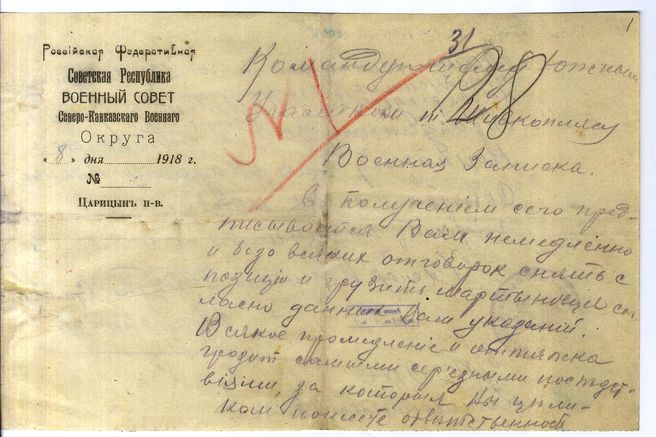 Россійская Федеративная
Советская Республика
ВОЕННЫЙ СОВЕТ
Северо-Кавказскаго Военнаго
Округа
« 8 » дня 1918 г.
№
Царицынъ н-в.
1
31
Командующему Южным
Участком т.
Военная Записка.
С получением сего пред-
писывается Вам немедленно
и безо всяких отговорок снять с
позиции и грузить сог
ласно данных Вам указаний.
Всякое промедление и оттяжка
грозит самыми серьезными последст
виями, за которыя Вы цели-
ком понесете ответственность